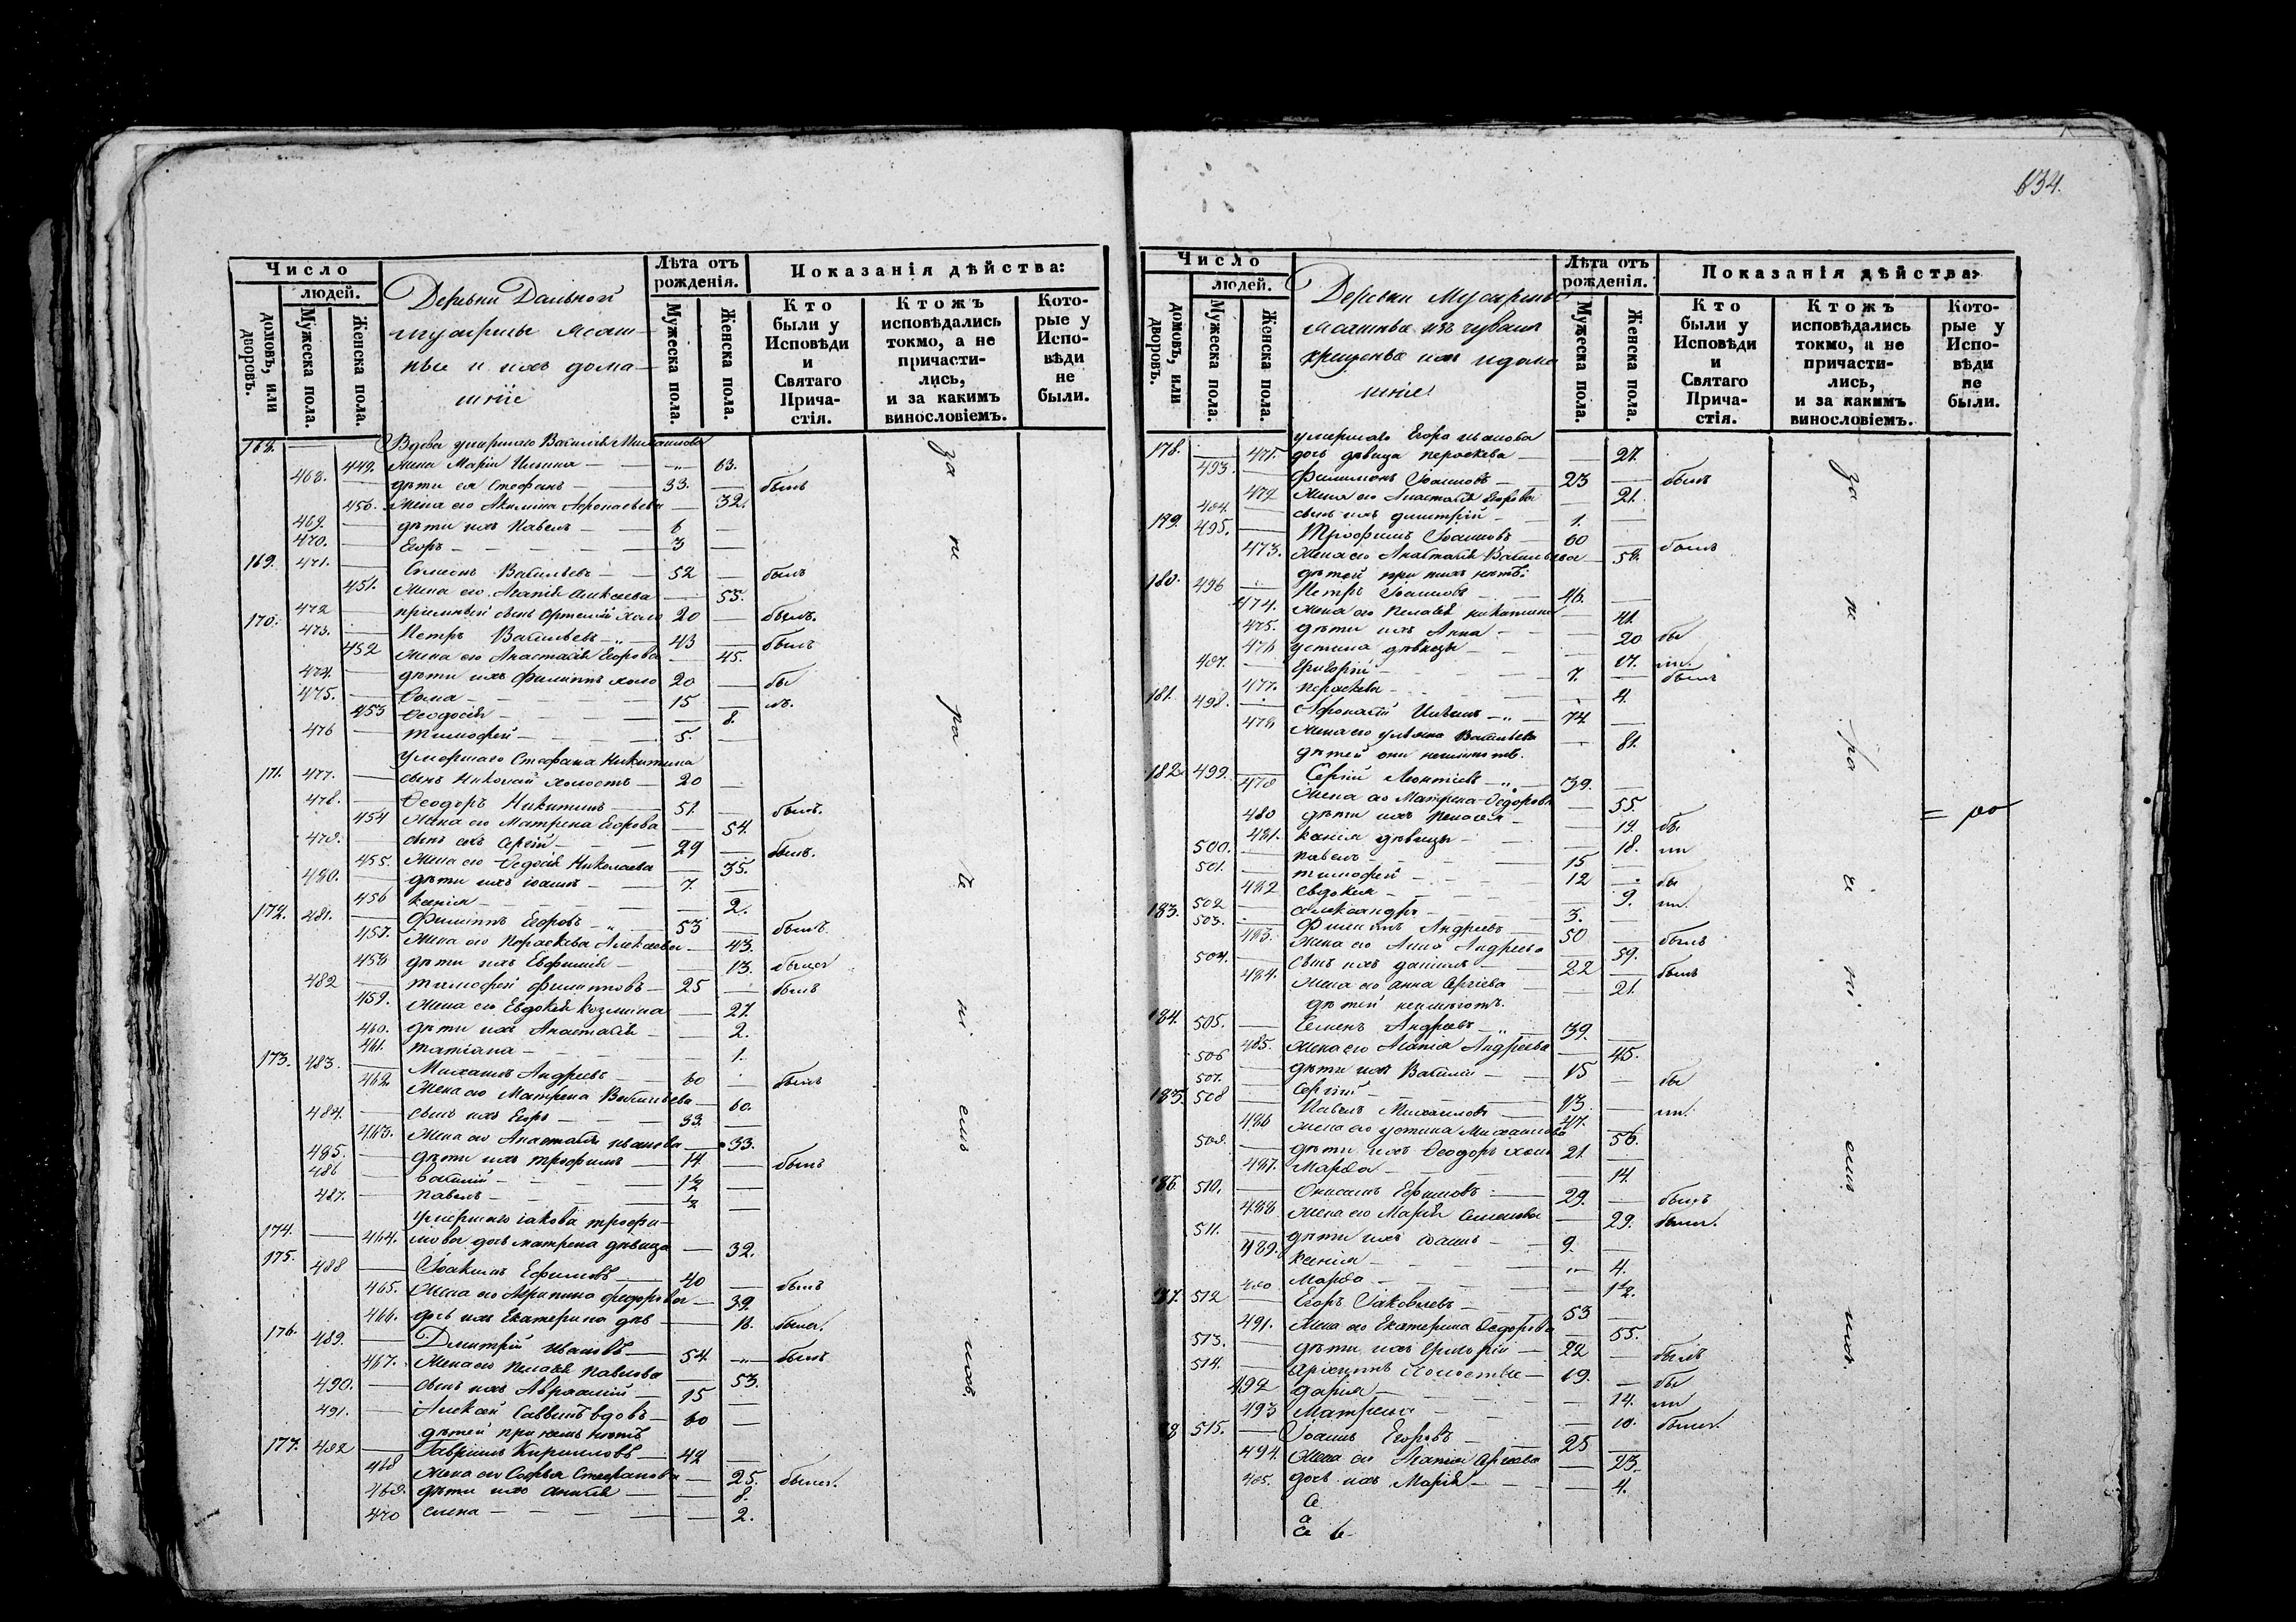 634.
Число
людей.
домовъ, или дворовъ.
Мужеска пола.
Женска пола.
Деревни Дальной
ясаш-
ные и ихъ дома-
шніе
Лѣта отъ рожденія.
Мужеска пола.
Женска пола.
Показанія дѣйства:
Кто были у Исповѣди и Святаго Прича-стія.
Ктожъ исповѣдались токмо, а не причасти-лись, и за какимъ винословіемъ.
Кото-рые у Испо-вѣди не были.
168. Вдова умершаго Василья Михайлова
449. жена Марія — 63.
468. дѣти ея Стефанъ — 33. былъ
450. жена его Акилина — 32.
469. дѣти ихъ Павелъ — 6
470. Егоръ — 3
169. 471. Симеонъ Васильевъ — 52 былъ
451. жена его Агапія Алексѣева 55.
472 пріимный сынъ Артемій холо 20 былъ.
170. 473. Петръ Васильевъ — 43 былъ
452 жена его Анастасія Егорова 45.
474. дѣти ихъ Филиппъ холо 20 бы
475. Ѳома — 15 лъ.
453 Ѳеодосія — 8.
476 Тимофей — 5.
Умершаго Стефана Никитина
171. 477. сынъ Николай холостъ — 20
478. Ѳеодоръ Никитинъ — 51. былъ.
454 жена его Матрена Егорова 54.
479. сынъ ихъ Сергій — 29 былъ.
455. жена его Ѳедосія Николаева 35.
480. дѣти ихъ Іоаннъ — 7.
456 Ксенія — 2.
172. 481. Филиппъ Егоровъ — 53 былъ.
457. жена его Параскева Алексѣева — 43.
458 дѣти ихъ Евфимія — 13. была
482 Тимофей Филипповъ — 25 былъ
459. жена его Евдокія Козмина 27.
460. дѣти ихъ Анастасія — 2.
461. Татіана — 1.
173. 483. Михаилъ Андреевъ — 60 былъ
462 жена его Матрена Васильева — 60.
484. сынъ ихъ Егоръ — 33.
463. жена его Анастасія Иванова — 33.
485. дѣти ихъ Трофимъ — 14. былъ
486 Василій — 1½
487. Павелъ — ½
Умершаго Іакова Трофи-
174. 464. мова дочь Матрена дѣвица — 32.
175. 488 Іоакимъ Ефимовъ — 40 былъ
465. жена его Агрипина Федорова — 39.
466. дочь ихъ Екатерина дѣв — 18. была.
176. 489. Дмитрій Ивановъ — 54. былъ
467. жена его Пелагія Павлова 53.
490. сынъ ихъ Авраамій — 15
491. Алексѣй Саввинъ вдовъ — 60
дѣтей при немъ нѣтъ
177. 492 Гавріилъ Кирилловъ — 42
468 жена его Софья Стефанова — 25. была.
469. дѣти ихъ 8.
470 Елена — 2.
за не ра че ні емъ ихъ.
Число
людей.
домовъ, или дворовъ.
Мужеска пола.
Женска пола.
Деревни
изъ чувашъ
крещеные ихъ и дома
шніе
Лѣта отъ рожденія.
Мужеска пола.
Женска пола.
Показанія дѣйства:
Кто были у Исповѣди и Святаго Прича-стія.
Ктожъ исповѣдались токмо, а не причасти-лись, и за какимъ винословіемъ.
Кото-рые у Испо-вѣди не были.
умершаго Егора Иванова
178. 471. дочь дѣвица Параскева — 27.
493. Филимонъ Іоанновъ — 23 былъ
472 жена его Анастасія Егорова 21.
494. сынъ ихъ Димитрій — 1.
179. 495. Трофимъ Іоанновъ — 60 былъ
473. жена его Анастасія Васильева — 58.
дѣтей при нихъ нѣтъ.
180. 496 Петръ Іоанновъ — 46.
474. жена его Пелагія Никитина 41.
475. дѣти ихъ Анна — 20 бы
476 Устина дѣвицы 17. ли.
497. Григорій — 7. былъ
477. Параскева — 4.
181. 498. Афонасій — 74
478 жена его Ульяна Васильева 81.
дѣтей они неимѣютъ.
182. 499. Сергій Леонтіевъ — 39.
479 жена его Матрена Ѳедорова 55.
480 дѣти ихъ Пелагея — 19. бы
481. Ксенія дѣвицы — 18. ли
500. Павелъ — 15
501. Тимофей — 12 бы
482 Евдокія — 9. ли.
502 Александръ — 3.
183. 503. Филиппъ Андреевъ — 50 былъ
483. жена его Анна Андреева 59.
504. сынъ ихъ Даніилъ — 22 былъ
484. жена его Анна Сергіева 21.
дѣтей неимѣютъ.
184. 505. Семенъ Андреевъ — 39.
485. жена его Агапія Андреева 45.
506 дѣти ихъ Василій — 15 бы
507. Сергій — 13 ли.
185. 508 Павелъ Михайловъ — 47.
486 жена его Устина Михайлова 56.
509. дѣти ихъ Ѳеодоръ холо 21.
487. Марѳа — 14.
186. 510. Онисимъ Ефимовъ — 29. былъ
488 жена его Марія Семенова 29. была.
511. дѣти ихъ Іоаннъ — 9.
489. Ксенія — 4.
490 Марѳа — 1½.
187. 512 Егоръ Іаковлевъ — 53
491. жена его Екатерина Ѳедорова 55.
513. дѣти ихъ Григорій — 22 былъ
514. Архиппъ холостые — 19. бы
492 Дарія — 14. ли
493 Матрена — 10. была.
8 515. Іоаннъ Егоровъ — 25
494. жена его Агапія Сергѣева 23.
495. дочь ихъ Марія — 4.
за не ра че ні емъ ихъ.